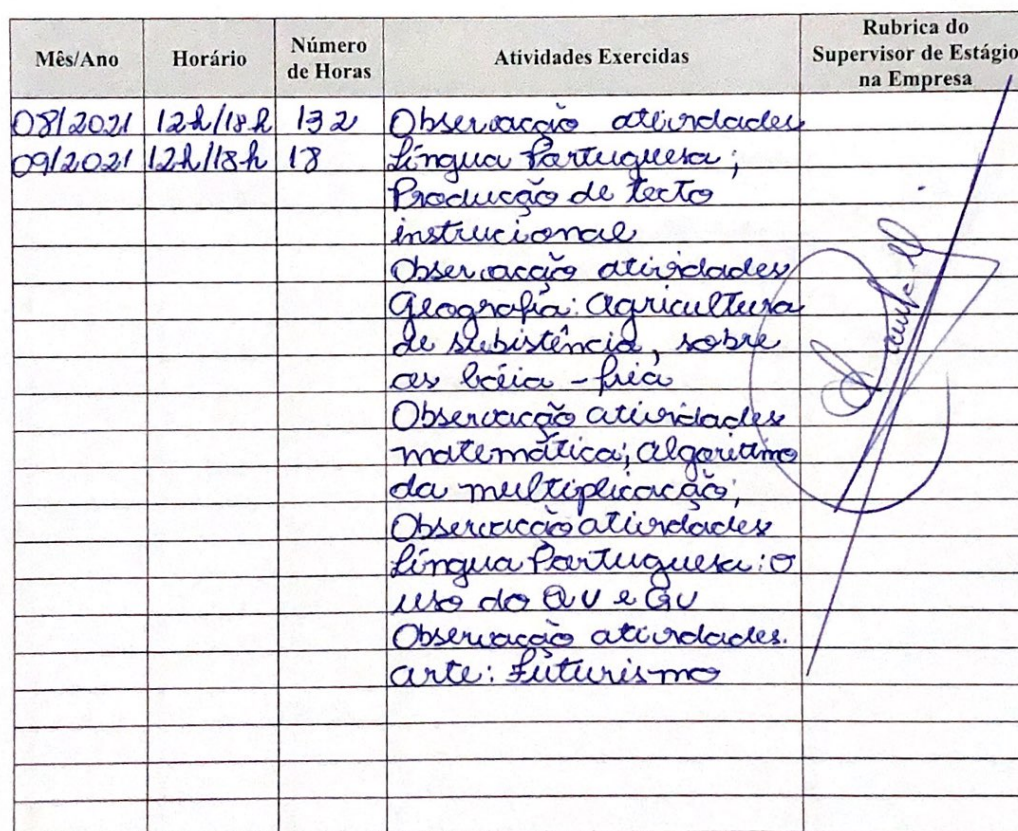 Mês/Ano Horário Número de Horas Atividades Exercidas Rubrica do Supervisor de Estágio na Empresa
08/2021 12h/18h 132 Observação atividades
09/2021 12h/18h 18 Língua Portuguesa;
Produção de tecto
instrucional
Observação atividades
Geografia: agricultura
de subistência, sobre
as bóia-fria
Observação atividades
matemática; algoritmo
da multiplicação;
Observação atividades
Língua Portuguesa: o
uso do QU e GU
Observação atividades.
arte: Futurismo